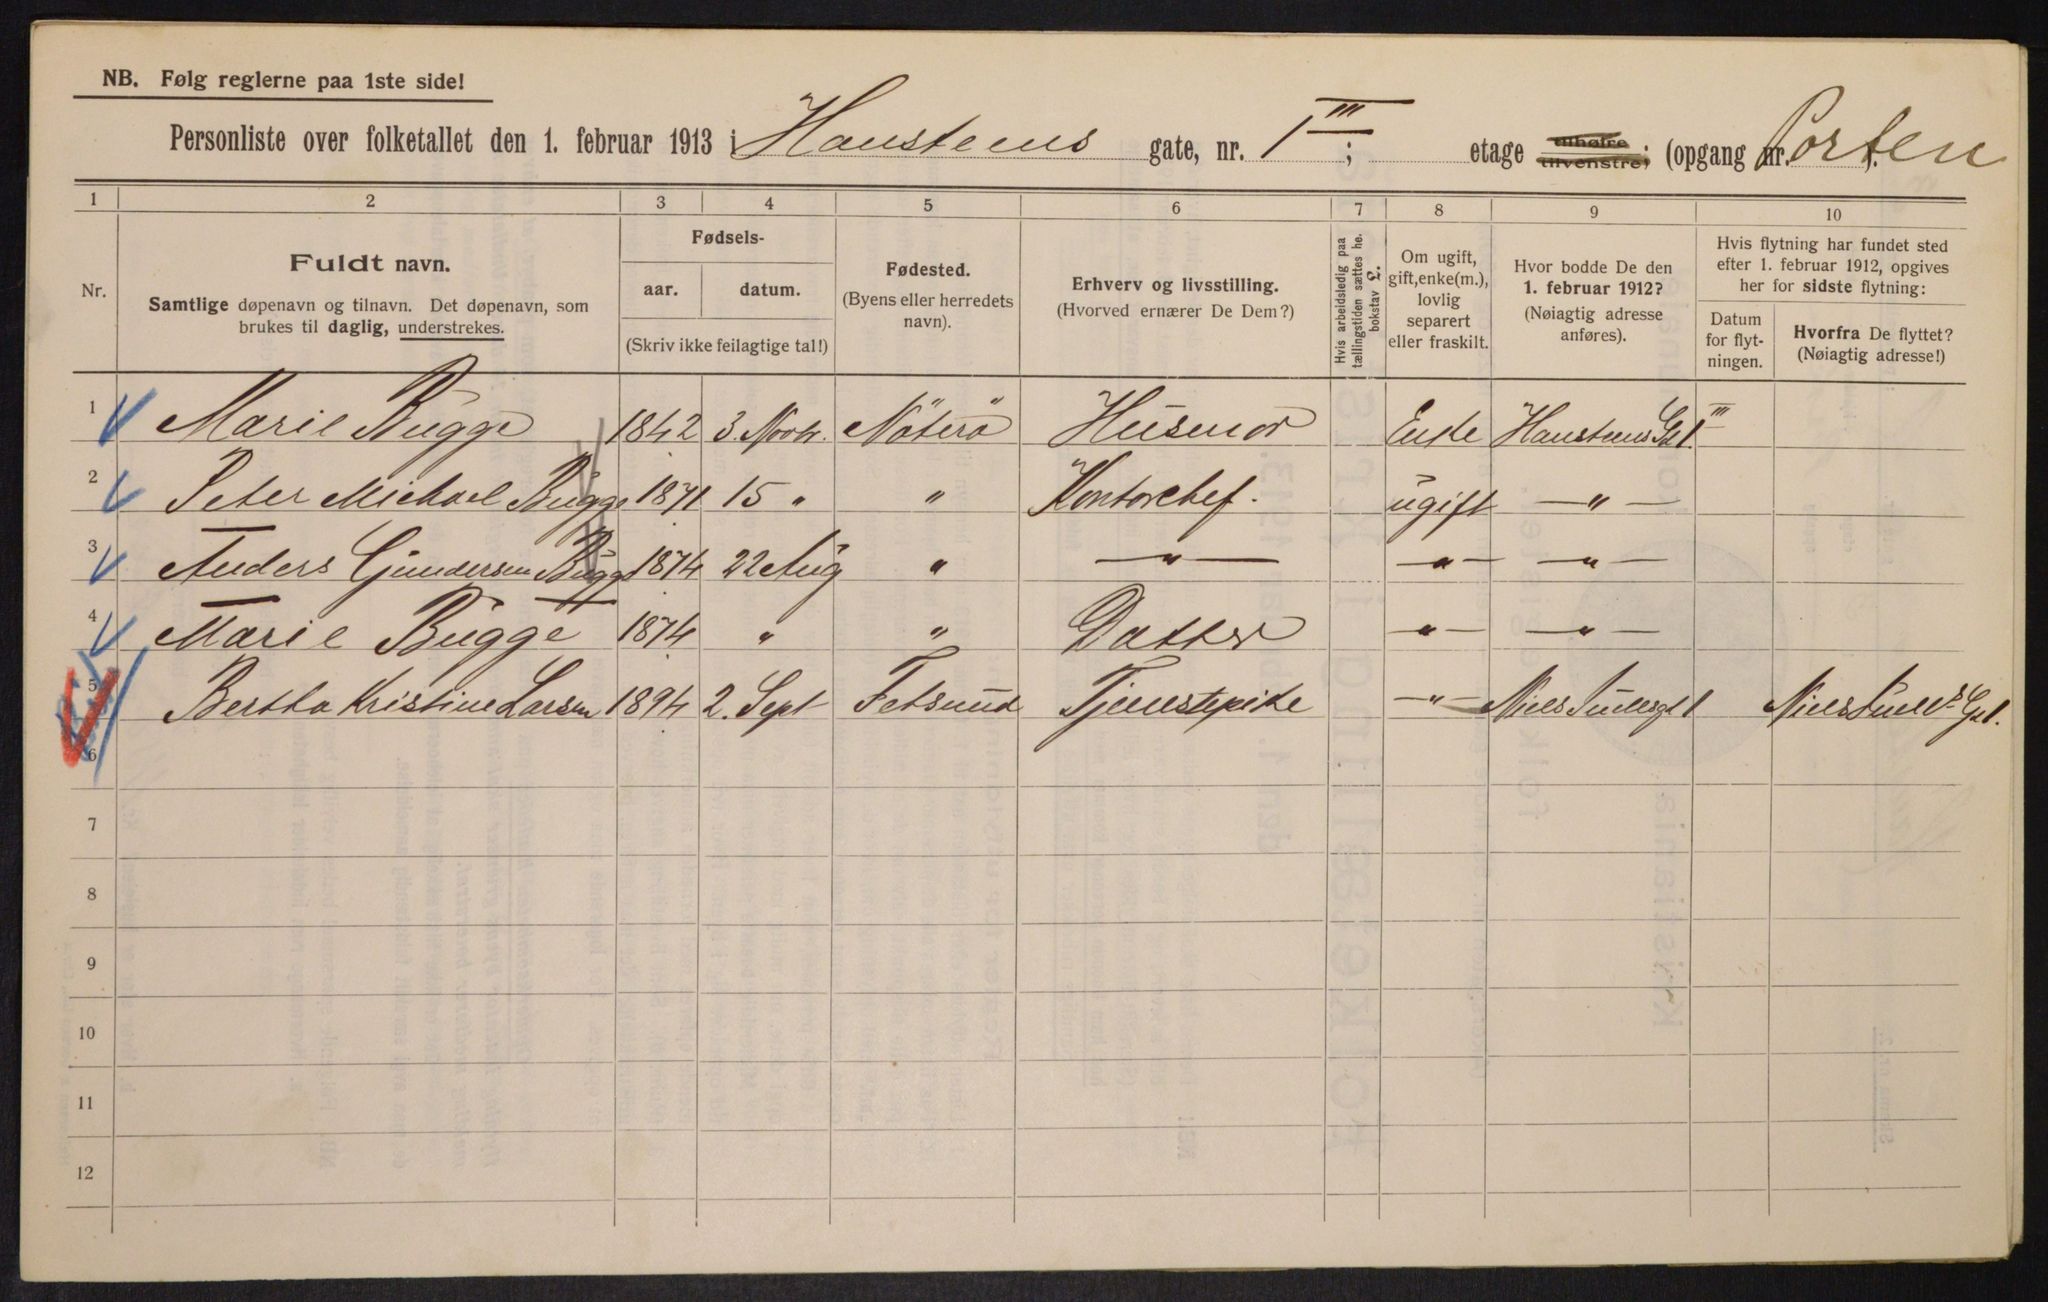 NB. Følg reglerne paa 1ste side!
Personliste over folketallet den 1. februar 1913 i Hansteens gate, nr. 1 III; etage tilhøire tilvenstre; (opgang nr. Porten ).
1 2 3 4 5 6 7 8 9 10
Nr.
Fuldt navn.
Samtlige døpenavn og tilnavn. Det døpenavn, som
brukes til daglig, understrekes.
Fødsels-
aar. datum.
(Skriv ikke feilagtige tal!)
Fødested.
(Byens eller herredets
navn).
Erhverv og livsstilling.
(Hvorved ernærer De Dem?)
Hvis arbeidsledig paa
tællingstiden sættes he.
bokstav L.
Om ugift,
gift, enke(m.),
lovlig
separert
eller fraskilt.
Hvor bodde De den
1. februar 1912?
(Nøiagtig adresse
anføres).
Hvis flytning har fundet sted
efter 1. februar 1912, opgives
her for sidste flytning:
Datum
for flyt-
ningen.
Hvorfra De flyttet?
(Nøiagtig adresse!)
1 Marie Bugge 1842 3. Novbr. Nöterö Husmor Enke Hansteens Gd 1 III
2 Peter Michael Bugge 1871 15 " " Kontorchef. ugift — " —
3 Anders Gundersen Bugge 1874 22 Aug " — " — — " — — " —
4 Marie Bugge 1874 " " Datter — " — — " —
5 Bertha Kristine Larsen 1894 2. Sept Fetsund Tjenestepike — " — Niels Juelsgt 1 Niels Juels Gd 1.
6
7
8
9
10
11
12